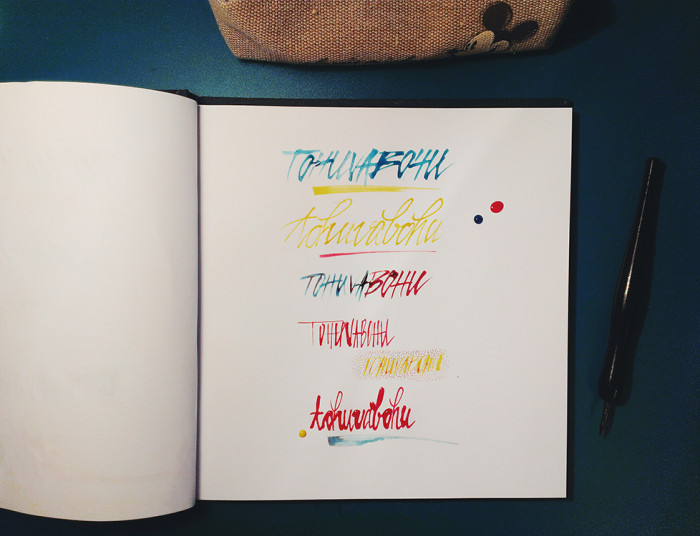 TOHUVABOHU
tohuvabohu
TOHUVABOHU
TOHUVABOHU
TOHUVABOHU
tohuvabohu